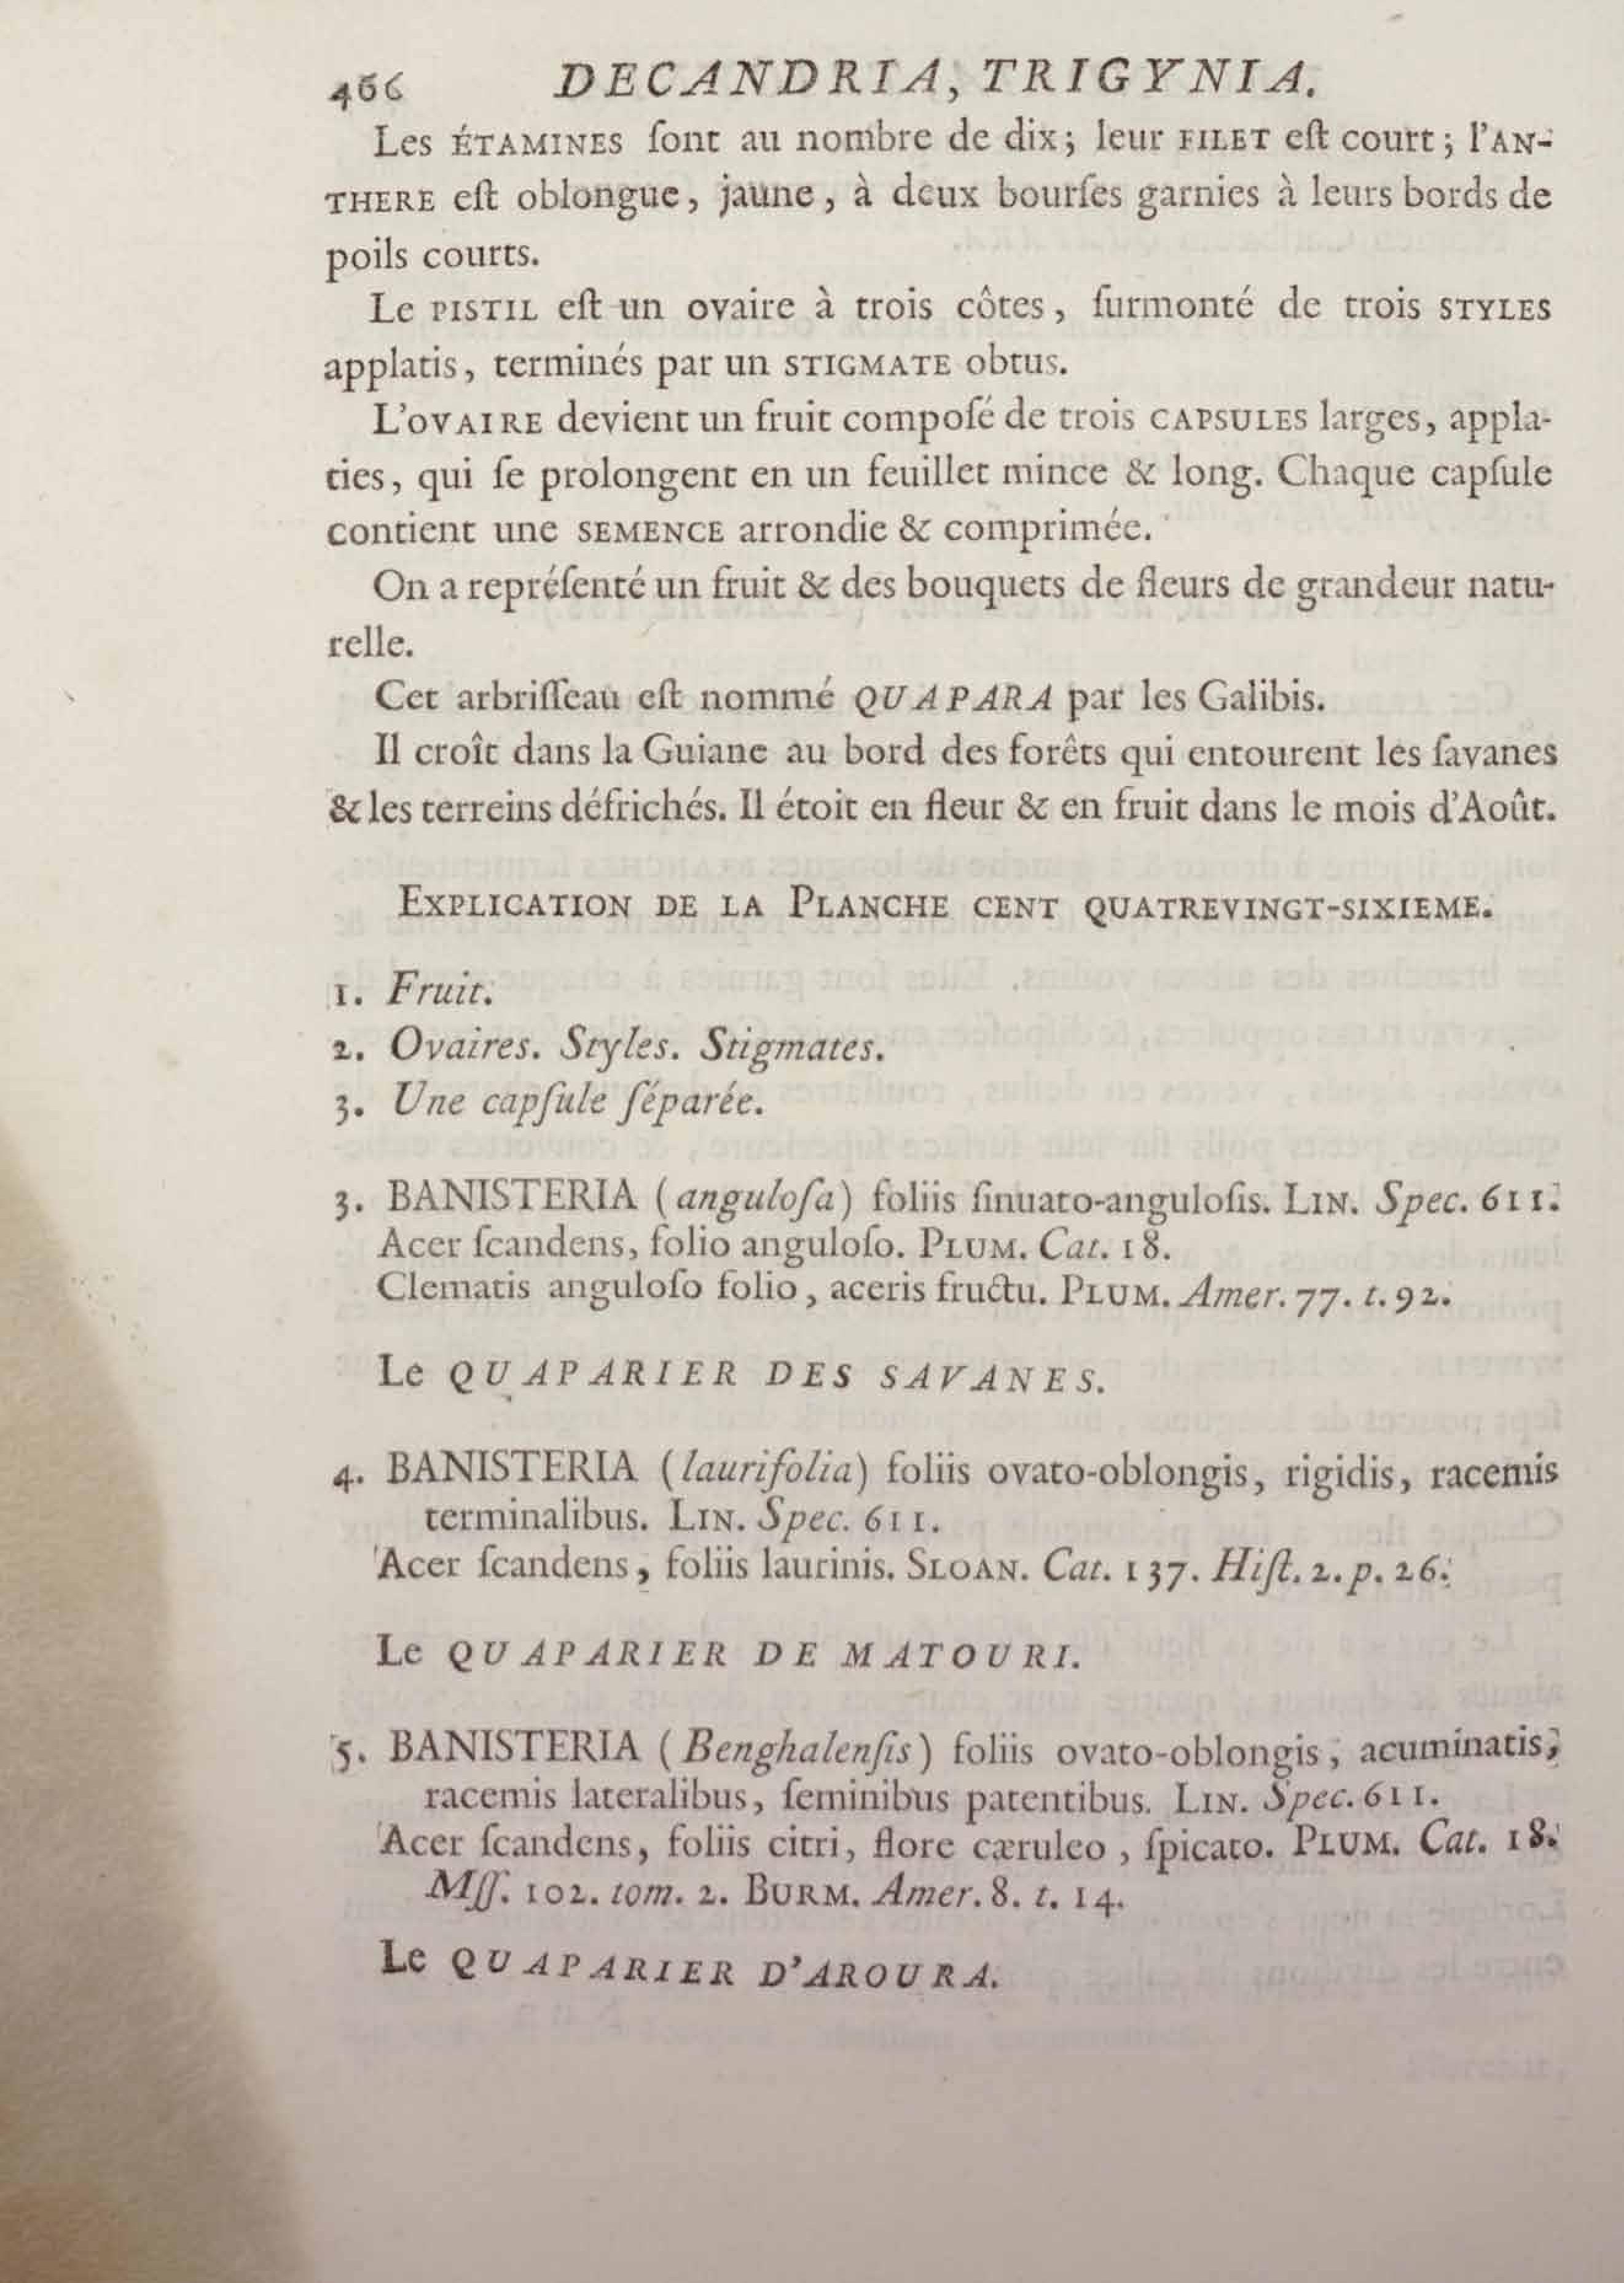 466 DECANDRIA, TRIGYNIA.
Les ÉTAMINES ſont au nombre de dix; leur FILET eſt court; l'AN-
THERE eſt oblongue, jaune, à deux bourſes garnies à leurs bords de
poils courts.
Le PISTIL eſt un ovaire à trois côtes, ſurmonté de trois STYLES
applatis, terminés par un STIGMATE obtus.
L'OVAIRE devient un fruit compoſé de trois CAPSULES larges, appla-
ties, qui ſe prolongent en un feuillet mince & long. Chaque capſule
contient une SEMENCE arrondie & comprimée.
On a repréſenté un fruit & des bouquets de fleurs de grandeur natu-
relle.
Cet arbriſſeau eſt nommé QUAPARA par les Galibis.
Il croît dans la Guiane au bord des forêts qui entourent les ſavanes
& les terreins défrichés. Il étoit en fleur & en fruit dans le mois d'Août.
EXPLICATION DE LA PLANCHE CENT QUATREVINGT-SIXIEME.
1. Fruit.
2. Ovaires. Styles. Stigmates.
3. Une capſule ſéparée.
3. BANISTERIA (anguloſa) foliis ſinuato-anguloſis. LIN. Spec. 611.
Acer ſcandens, folio anguloſo. PLUM. Cat. 18.
Clematis anguloſo folio, aceris fructu. PLUM. Amer. 77. t. 92.
Le QUAPARIER DES SAVANES.
4. BANISTERIA (laurifolia) foliis ovato-oblongis, rigidis, racemis
terminalibus. LIN. Spec. 611.
Acer ſcandens, foliis laurinis. SLOAN. Cat. 137. Hiſt. 2. p. 26.
Le QUAPARIER DE MATOURI.
5. BANISTERIA (Benghalenſis) foliis ovato-oblongis, acuminatis,
racemis lateralibus, ſeminibus patentibus. LIN. Spec. 611.
Acer ſcandens, foliis citri, flore cæruleo, ſpicato. PLUM. Cat. 18.
Mſſ. 102. tom. 2. BURM. Amer. 8. t. 14.
Le QUAPARIER D'AROURA.